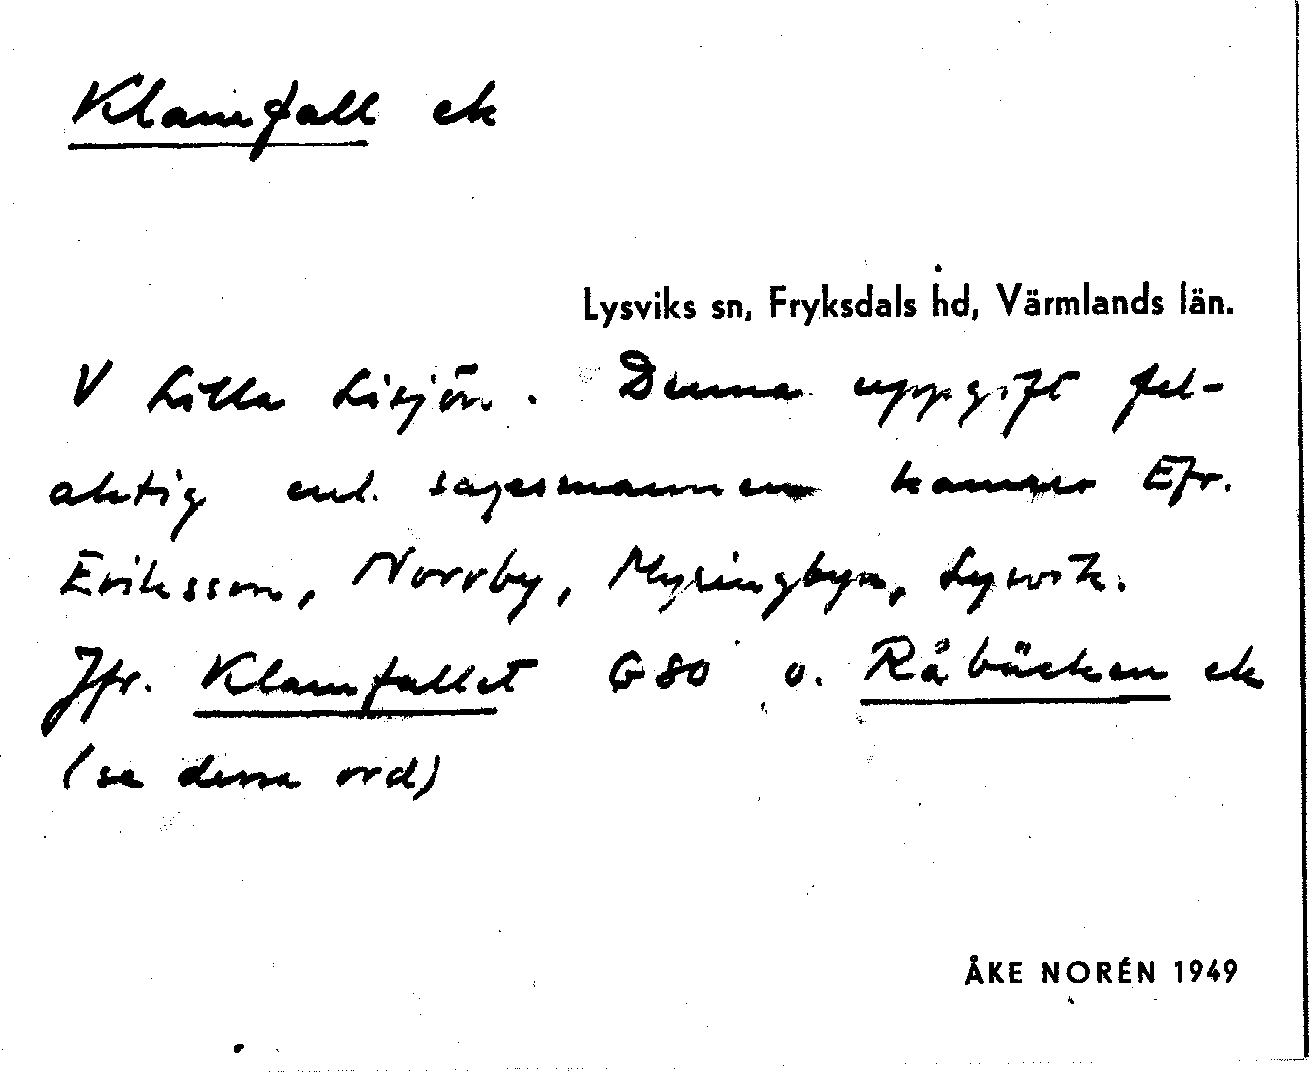 Klamfall ek
Lysviks sn, Fryksdals hd, Värmlands län.
V Lilla Lisjön. Denna uppgift fel-
aktig enl. sagesmannen kamrer Efr.
Eriksson, Norrby, Myringbyn, Lysvik.
Jfr. Klamfallet GSO o. Råbäcken ek
(se dessa ord)
ÅKE NORÉN 1949